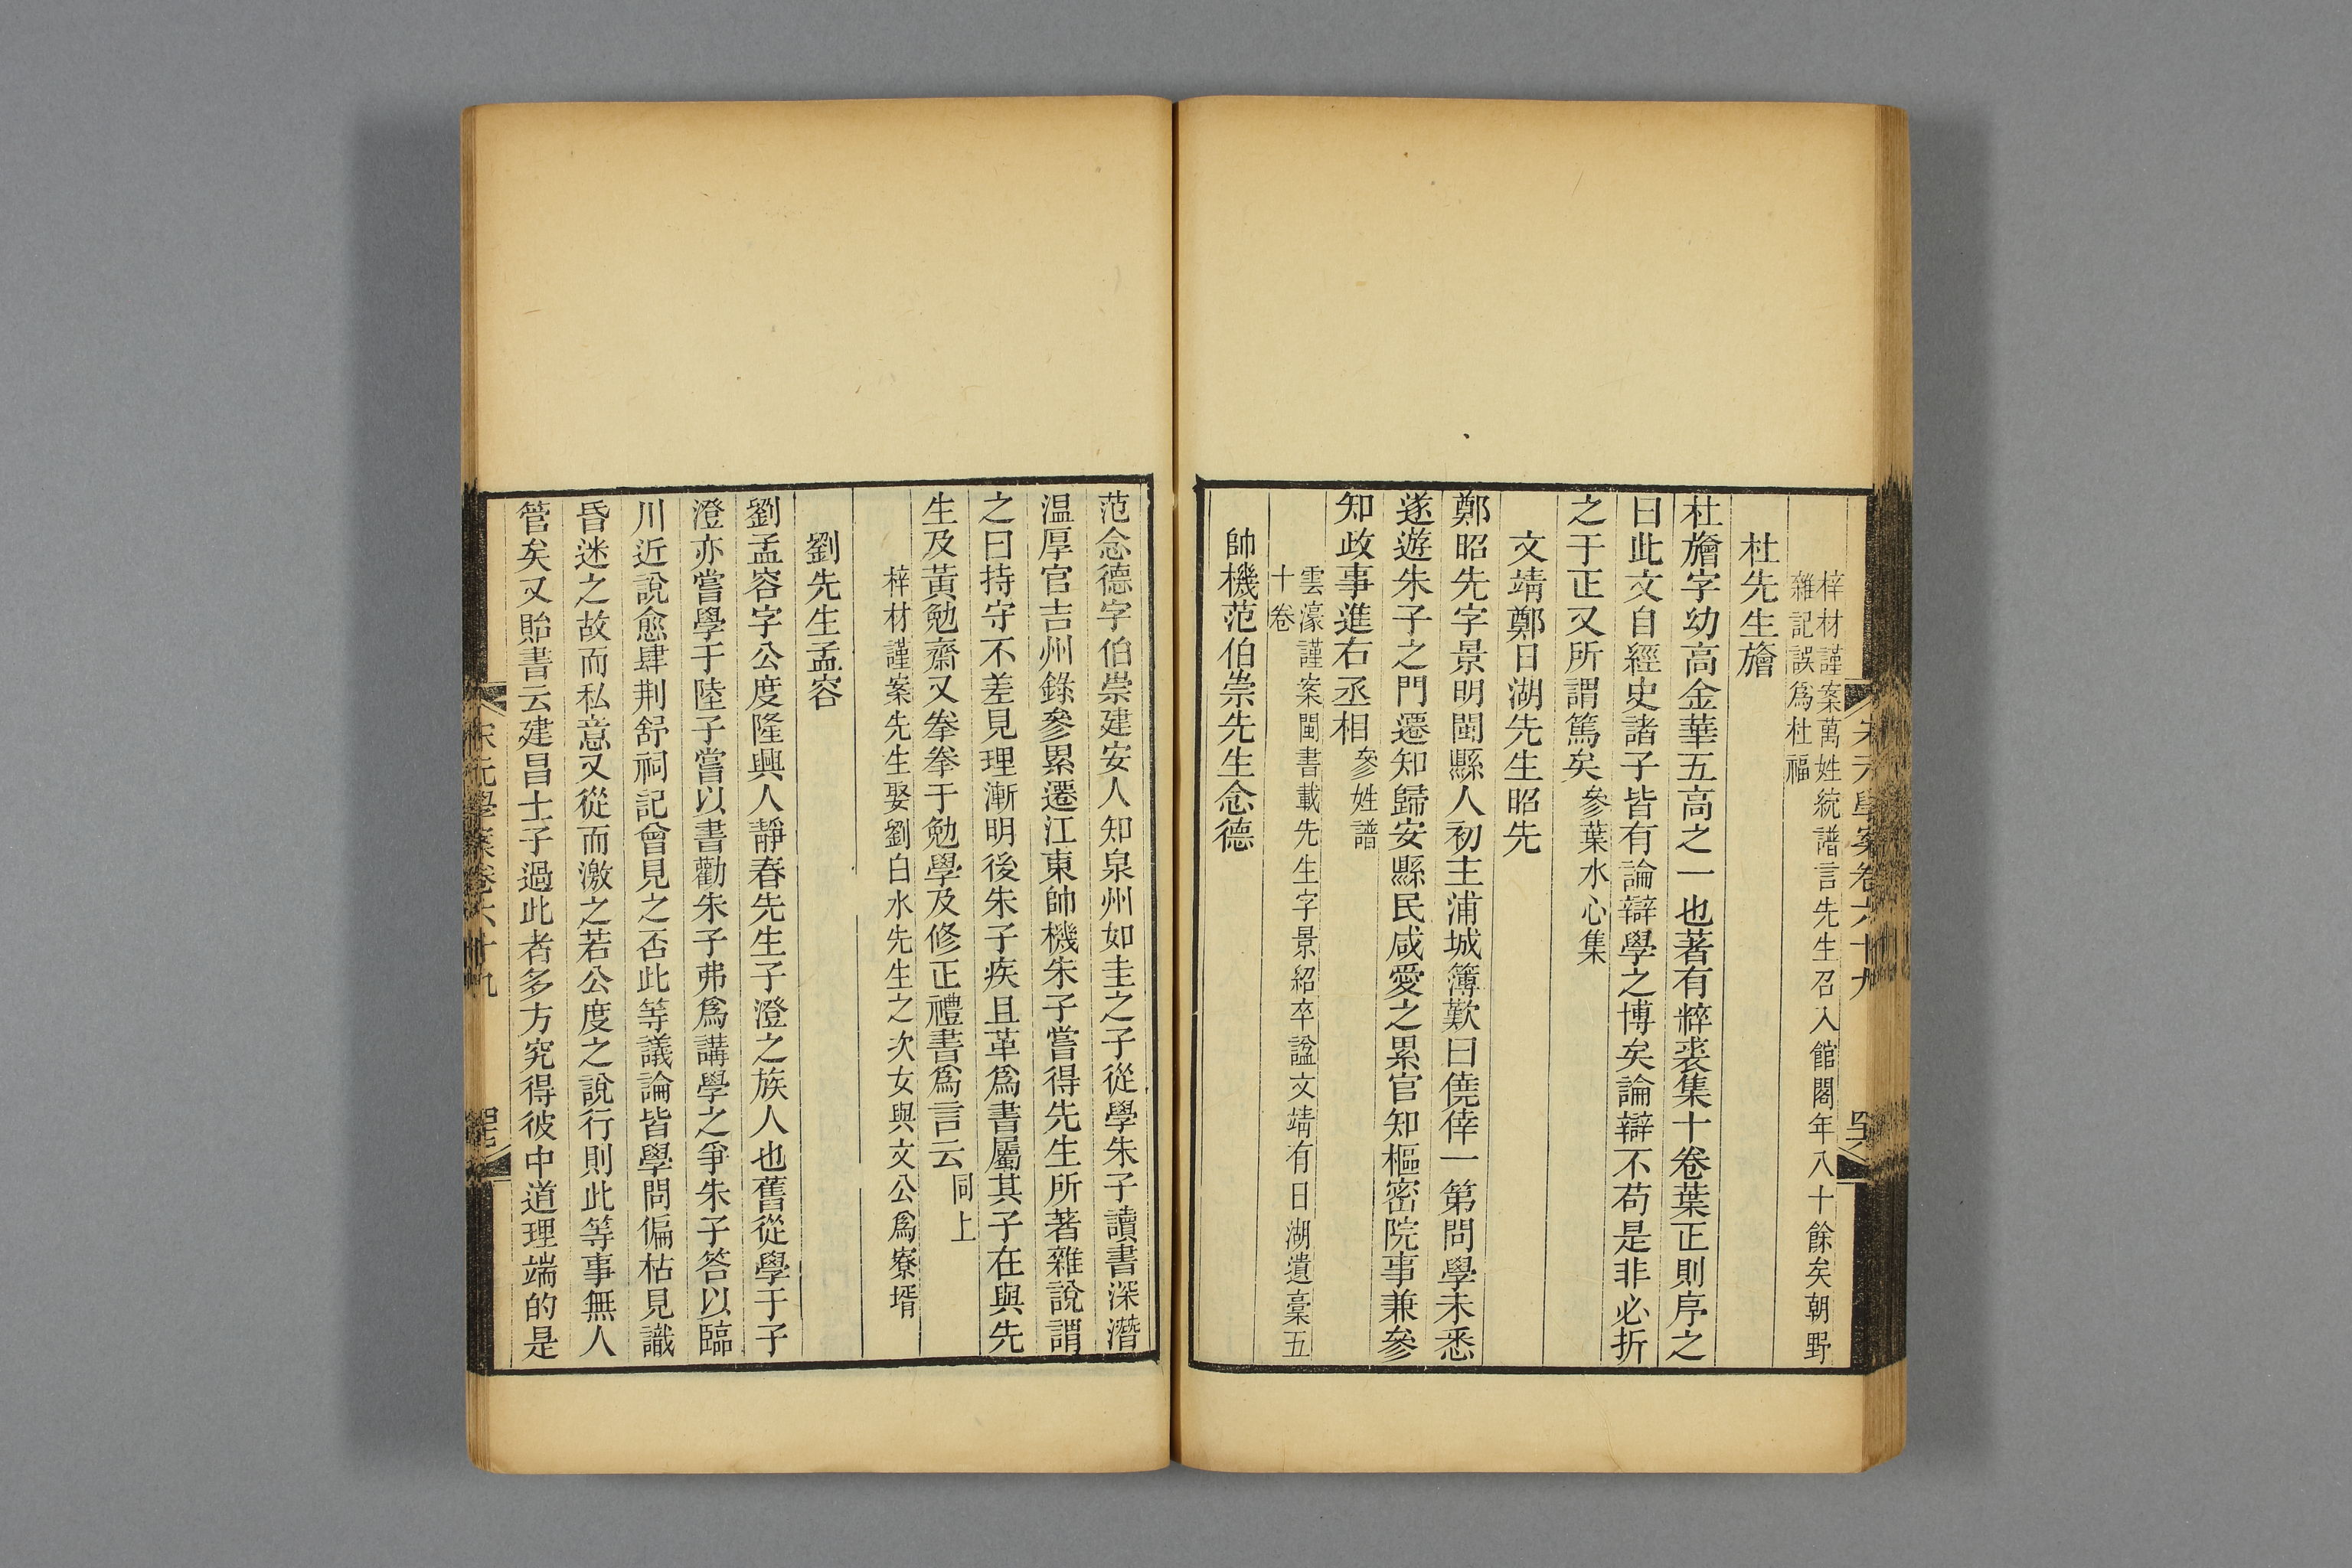 梓材謹案萬姓統譜言先生召入館閣年八十餘矣朝野
雜記誤爲杜福
杜先生旝
杜旝字幼高金華五高之一也著有粹裘集十卷葉正則序之
曰此文自經史諸子皆有論辯學之博矣論辯不苟是非必折
之于正又所謂篤矣參葉水心集
文靖鄭日湖先生昭先
鄭昭先字景明閩縣人初主浦城簿歎曰僥倖一第問學未悉
遂遊朱子之門遷知歸安縣民咸愛之累官知樞密院事兼參
知政事進右丞相參姓譜
雲濠謹案閩書載先生字景紹卒謚文靖有日湖遺稾五
十卷
帥機范伯崇先生念德
范念德字伯崇建安人知泉州如圭之子從學朱子讀書深潛
温厚官吉州錄參累遷江東帥機朱子嘗得先生所著雜說謂
之曰持守不差見理漸明後朱子疾且革爲書屬其子在與先
生及黃勉齋又拳拳于勉學及修正禮書爲言云同上
梓材謹案先生娶劉白水先生之次女與文公爲寮壻
劉先生孟容
劉孟容字公度隆興人靜春先生子澄之族人也舊從學于子
澄亦嘗學于陸子嘗以書勸朱子弗爲講學之爭朱子答以臨
川近說愈肆荆舒祠記曾見之否此等議論皆學問偏枯見識
昏迷之故而私意又從而激之若公度之說行則此等事無人
管矣又貽書云建昌士子過此者多方究得彼中道理端的是
宋元學案卷六十九